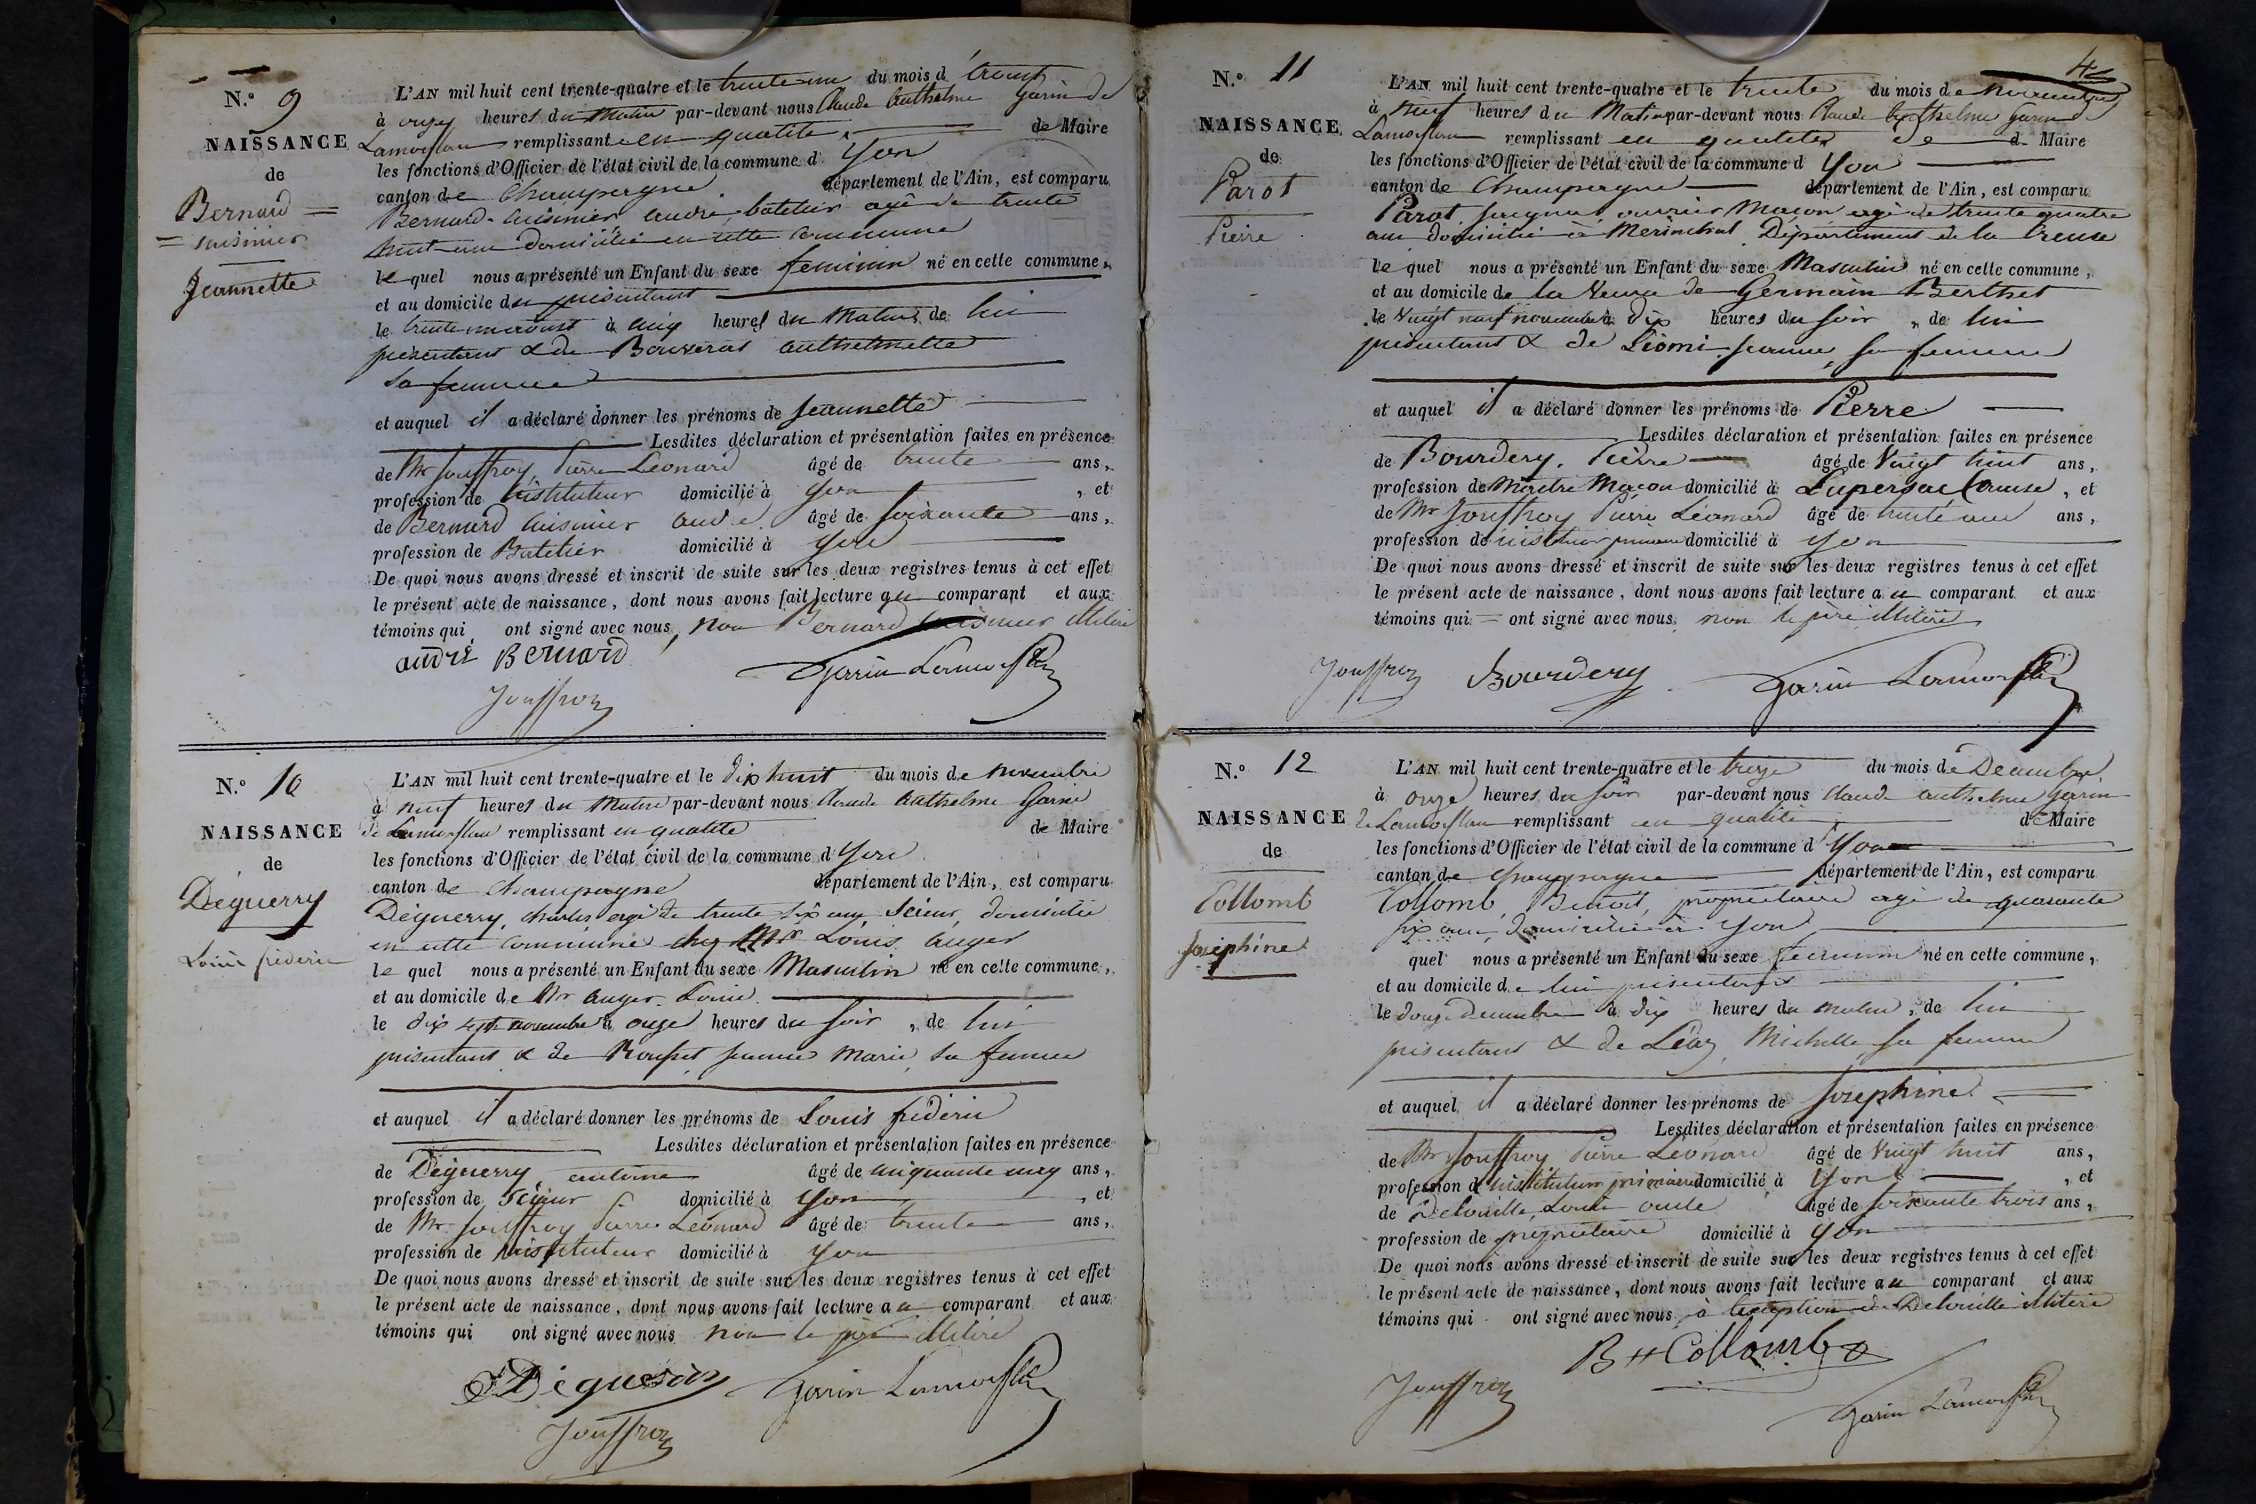 N.° 9
NAISSANCE
de
Bernard =
= cuisinier
Jeannette
L'AN mil huit cent trente-quatre et le trente un du mois d'
à onze heures du Matin par-devant nous Claude Anthelme Garin de
remplissant en qualité de Maire
les fonctions d'Officier de l'état civil de la commune d' Yon
canton de Champagne département de l'Ain, est comparu
Bernard-cuisinier andré batelier agé de trente
huit ans domicilié en cette commune
le quel nous a présenté un Enfant du sexe feminin né en cette commune,
et au domicile du présentant
le trente un à cinq heures du Matin, de lui
présentant & de anthelmette
sa femme
et auquel il a déclaré donner les prénoms de Jeannette
Lesdites déclaration et présentation faites en présence
de Mr Jouffroy, Pierre Léonard âgé de trente ans,
profession de instituteur domicilié à Yon , et
de Bernard cuisinier andré âgé de soixante ans,
profession de Batelier domicilié à Yon
De quoi nous avons dressé et inscrit de suite sur les deux registres tenus à cet effet
le présent acte de naissance, dont nous avons fait lecture au comparant et aux
témoins qui ont signé avec nous, non Bernard cuisinier illitéré
andré Bernard
Garin
Jouffroy
N.° 10
NAISSANCE
de
Déguerry
Louis fréderic
L'AN mil huit cent trente-quatre et le dix huit du mois de novembre
à neuf heures du Matin par-devant nous Claude Anthelme Garin
de remplissant en qualité de Maire
les fonctions d'Officier de l'état civil de la commune d' Yon
canton de Champagne département de l'Ain, est comparu
Déguerry, charles agé de trente six ans, Scieur, domicilié
en cette commune chez Mr Louis auger
le quel nous a présenté un Enfant du sexe Masculin né en cette commune,
et au domicile de Mr auger Louis
le dix sept novembre à onze heures du soir, de lui
présentant & de Jeanne Marie, sa femme
et auquel il a déclaré donner les prénoms de Louis fréderic
Lesdites déclaration et présentation faites en présence
de Déguerry antoine âgé de cinquante cinq ans,
profession de Scieur domicilié à Yon , et
de Mr Jouffroy Pierre Léonard âgé de trente ans,
profession de instituteur domicilié à Yon
De quoi nous avons dressé et inscrit de suite sur les deux registres tenus à cet effet
le présent acte de naissance, dont nous avons fait lecture au comparant et aux
témoins qui ont signé avec nous non le père illitéré
Garin
Jouffroy
N.° 11
NAISSANCE
de
Parot
Pierre
L'AN mil huit cent trente-quatre et le trente du mois de novembre
à neuf heures du Matin par-devant nous Claude Anthelme Garin de
remplissant en qualité de Maire
les fonctions d'Officier de l'état civil de la commune d' Yon
canton de Champagne département de l'Ain, est comparu
Parot, Jacques, ouvrier Macon agé de trente quatre
ans domicilié à Merinchal, Département de la Creuse
le quel nous a présenté un Enfant du sexe Masculin né en cette commune,
et au domicile de la Veuve de Germain Berthet
le vingt neuf novembre à dix heures du soir, de lui
présentant & de Jeanne, sa femme
et auquel il a déclaré donner les prénoms de Pierre
Lesdites déclaration et présentation faites en présence
de Bourdery, Pierre âgé de Vingt huit ans,
profession de Maitre Macon domicilié à Lupersac Creuse, et
de Mr Jouffroy Pierre Léonard âgé de trente ans,
profession de instituteur primaire domicilié à Yon
De quoi nous avons dressé et inscrit de suite sur les deux registres tenus à cet effet
le présent acte de naissance, dont nous avons fait lecture au comparant et aux
témoins qui = ont signé avec nous non le père illitéré
Jouffroy Bourdery Garin
N.° 12
NAISSANCE
de
Collomb
Joséphine
L'AN mil huit cent trente-quatre et le treize du mois de Decembre
à onze heures du soir par-devant nous Claude anthelme Garin
de remplissant en qualité de Maire
les fonctions d'Officier de l'état civil de la commune d' Yon
canton de Champagne département de l'Ain, est comparu
Collomb, Benoit, propriétaire agé de quarante
six ans, domicilié à Yon
quel nous a présenté un Enfant du sexe feminin né en cette commune,
et au domicile de lui présentant
le douze Decembre à dix heures du matin, de lui
présentant & de Michelle, sa femme
et auquel il a déclaré donner les prénoms de Joséphine
Lesdites déclaration et présentation faites en présence
de Mr Jouffroy Pierre Léonard âgé de Vingt huit ans,
profession d'instituteur primaire domicilié à Yon , et
de Delouille, Louis âgé de soixante trois ans,
profession de propriétaire domicilié à Yon
De quoi nous avons dressé et inscrit de suite sur les deux registres tenus à cet effet
le présent acte de naissance, dont nous avons fait lecture au comparant et aux
témoins qui ont signé avec nous à l'exception de Delouille illitéré
Bt Collomb
Jouffroy
Garin